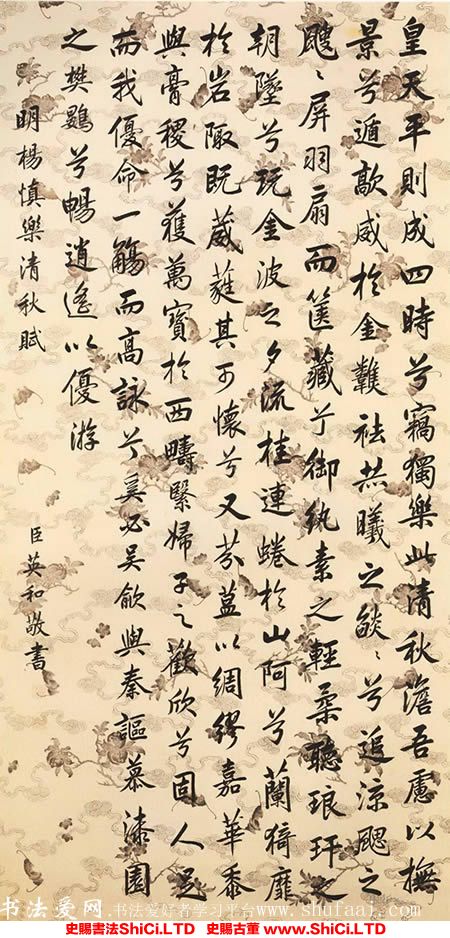 皇天平則成四時兮竊獨樂此清秋澹吾慮以撫
景兮遁歊威於金難祛炎曦之燄〻兮追涼颸之
颼〻屏羽扇而篋藏兮御紈素之輕柔聽琅玕之
朝墜兮玩金波之夕流桂連蜷於山阿兮蘭猗靡
於岩陬既葳蕤其可懷兮又芬蒀以綢繆嘉華黍
與膏稷兮獲萬寶於西疇緊婦子之歡欣兮固人足
而我優命一觴而高詠兮奚必吳歈與秦謳慕漆園
之樊鷃兮暢逍遙以優游
明楊慎樂清秋賦
臣英和敬書
书法爱网 书法爱好者学习平台 www.shufaai.com
史賜書法ShiCi.LTD 史賜古董 www.ShiCi.LTD